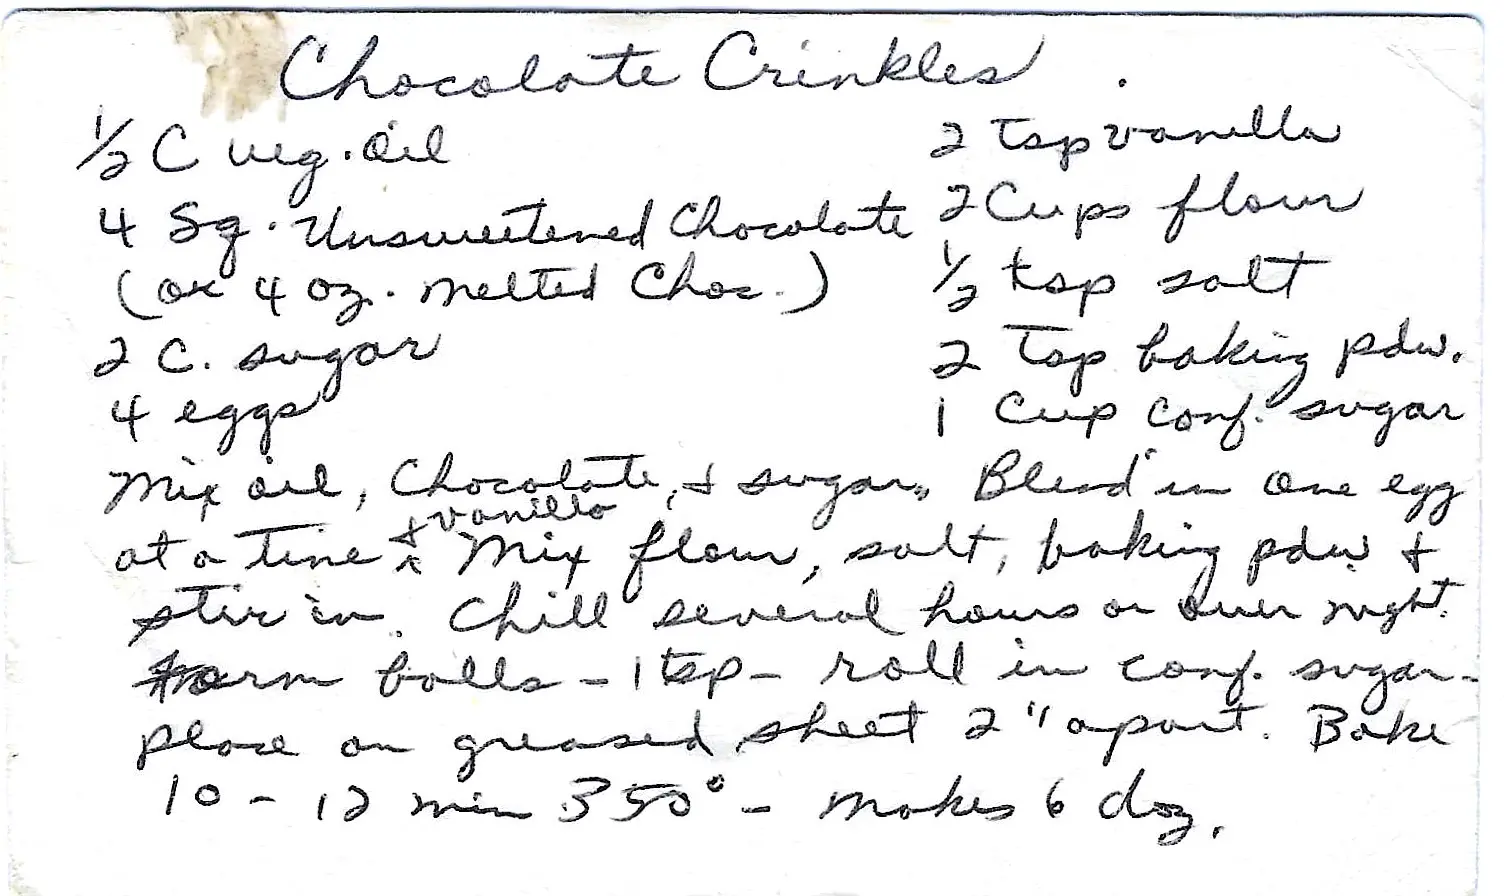 Chocolate Crinkles
½ C veg. oil
4 Sq. Unsweetened Chocolate
(or 4 oz. melted Choc.)
2 C. sugar
4 eggs
2 Tsp vanilla
2 Cups flour
½ tsp salt
2 Tsp baking pdw.
1 Cup conf. sugar
Mix oil, Chocolate, & sugar. Blend in one egg
at a time & vanilla Mix flour, salt, baking pdw &
stir in. Chill several hours or over night.
form balls - 1 tsp - roll in conf. sugar -
place on greased sheet 2" apart. Bake
10 - 12 min 350° - makes 6 doz.